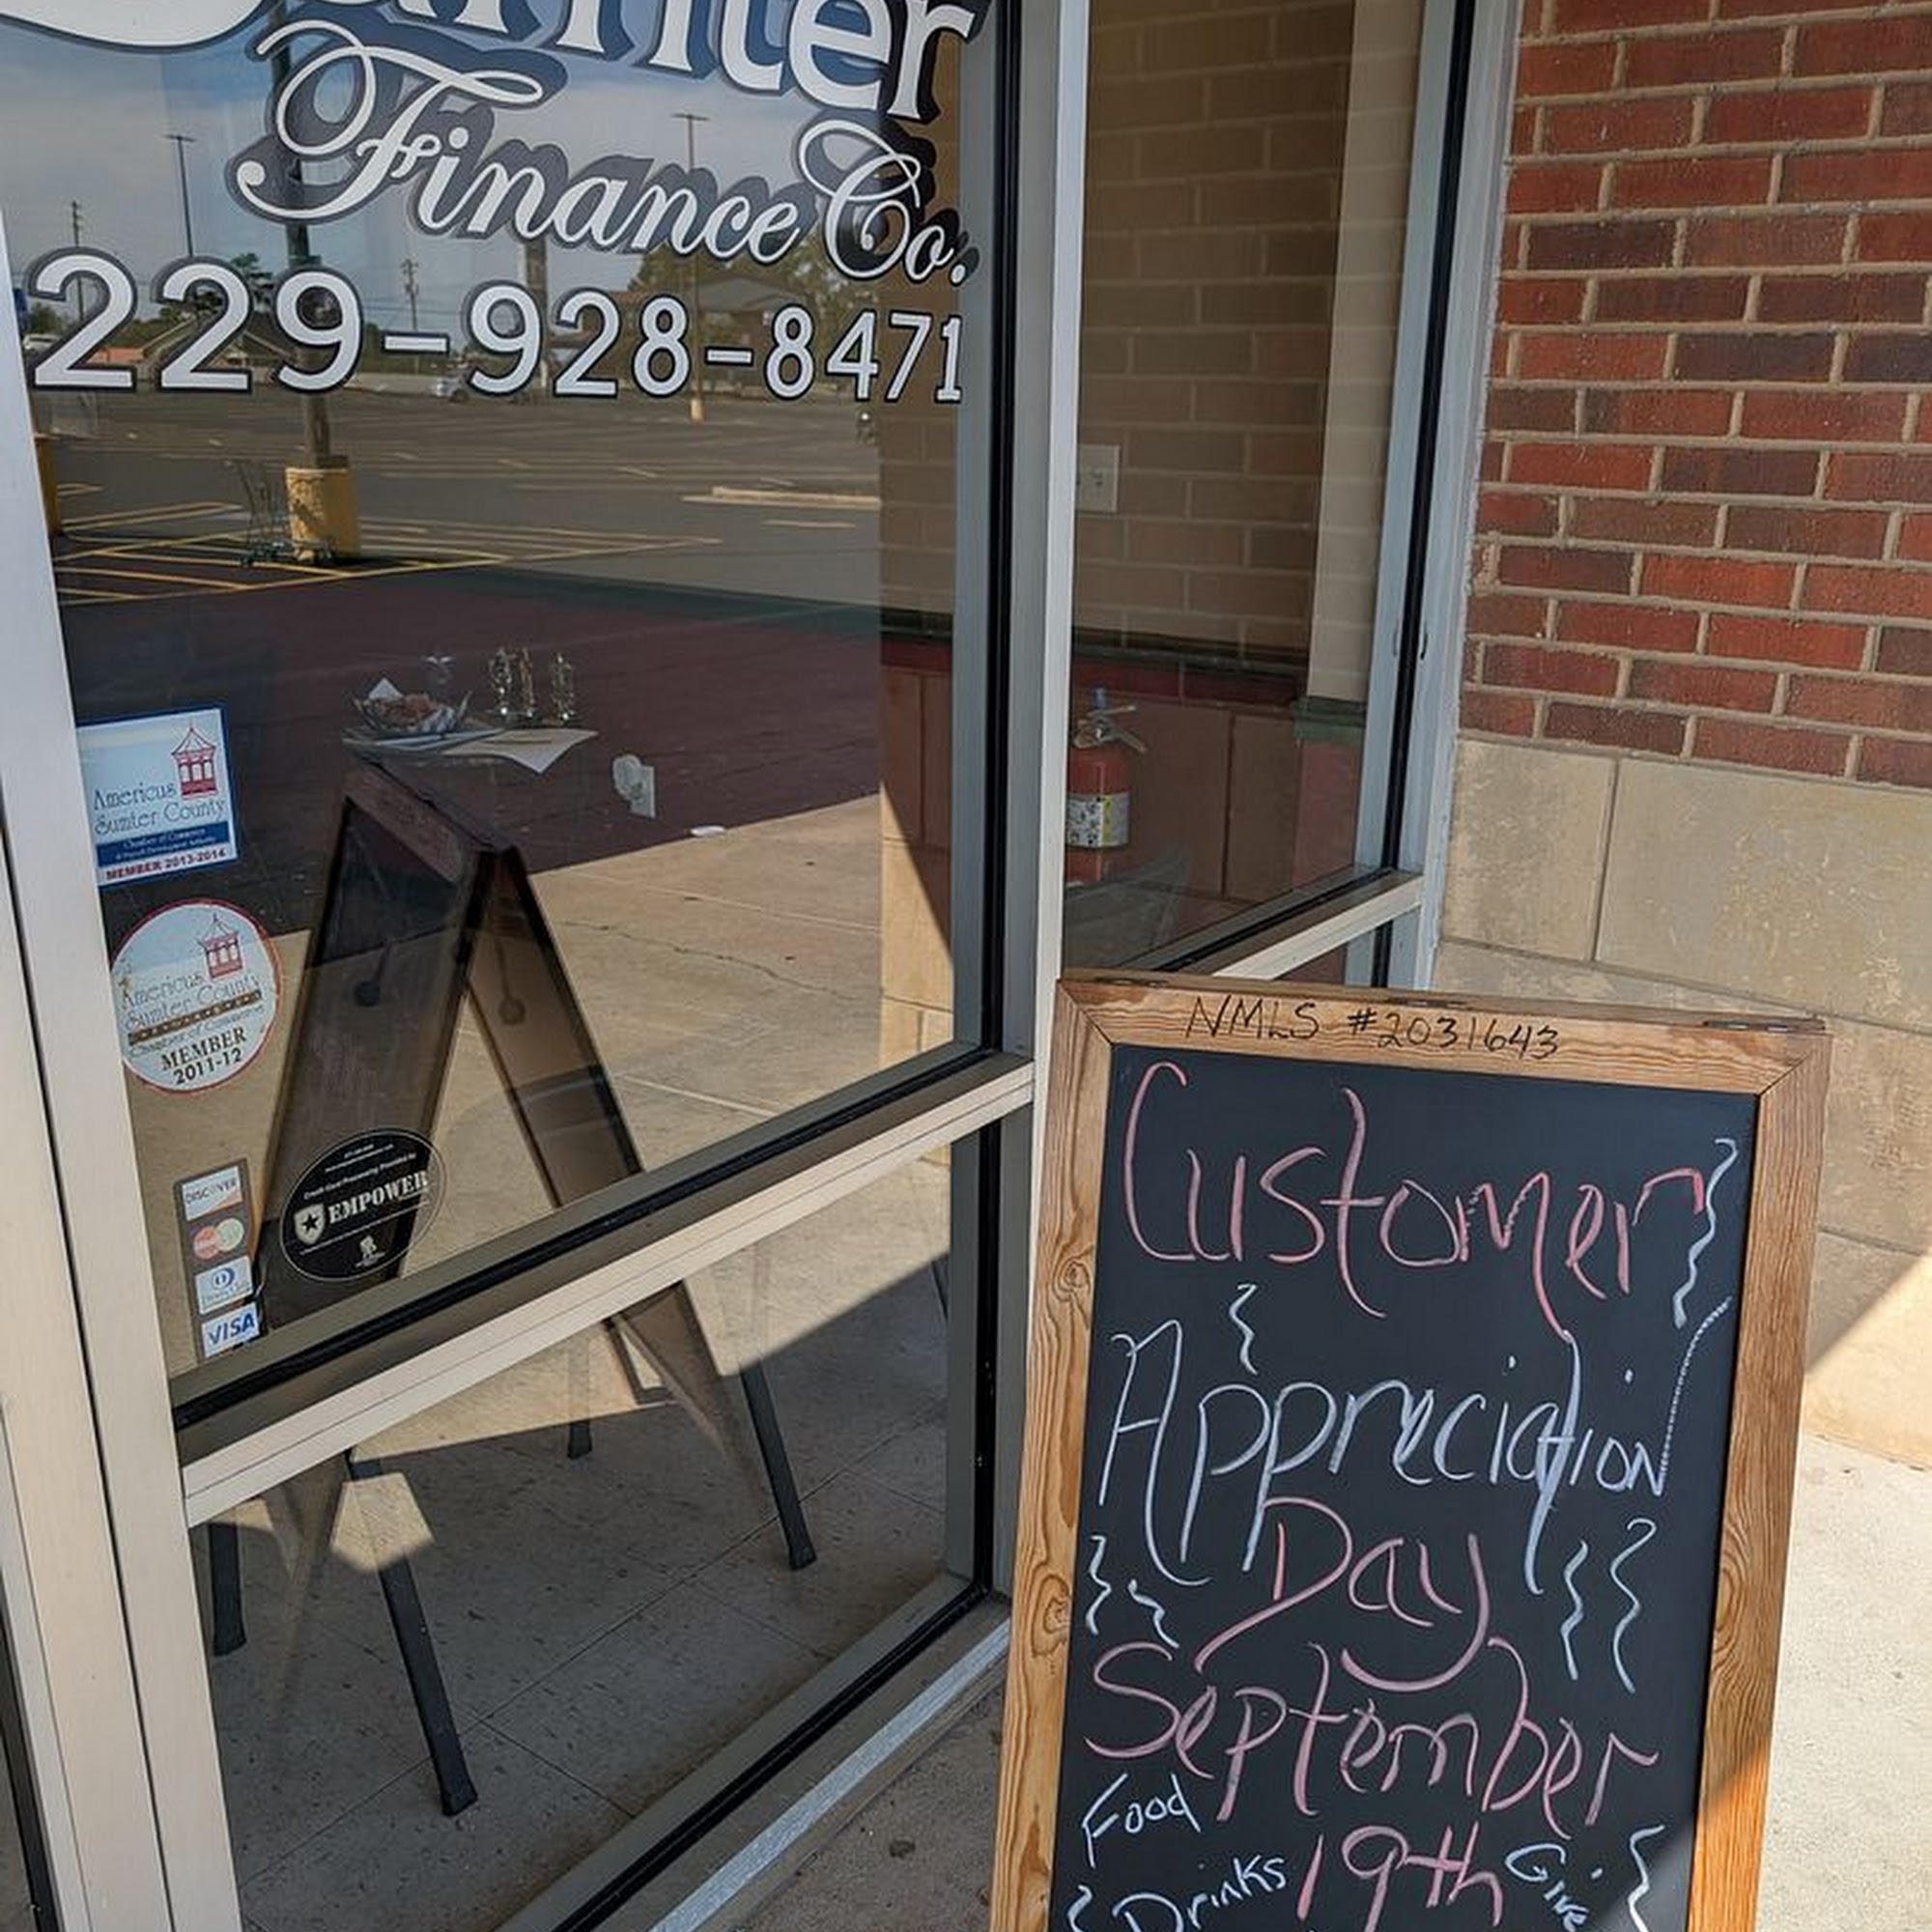 Sumter
Finance Co.
229-928-8471
Americus
Sumter County
Chamber of Commerce
MEMBER 2013-2014
Americus
Sumter County
Chamber of Commerce
MEMBER
2011-12
Credit Card Processing Provided by
EMPOWER
DISCOVER
VISA
NMLS #2031643
Customer
Appreciation
Day
September
19th
Food
Drinks
Give